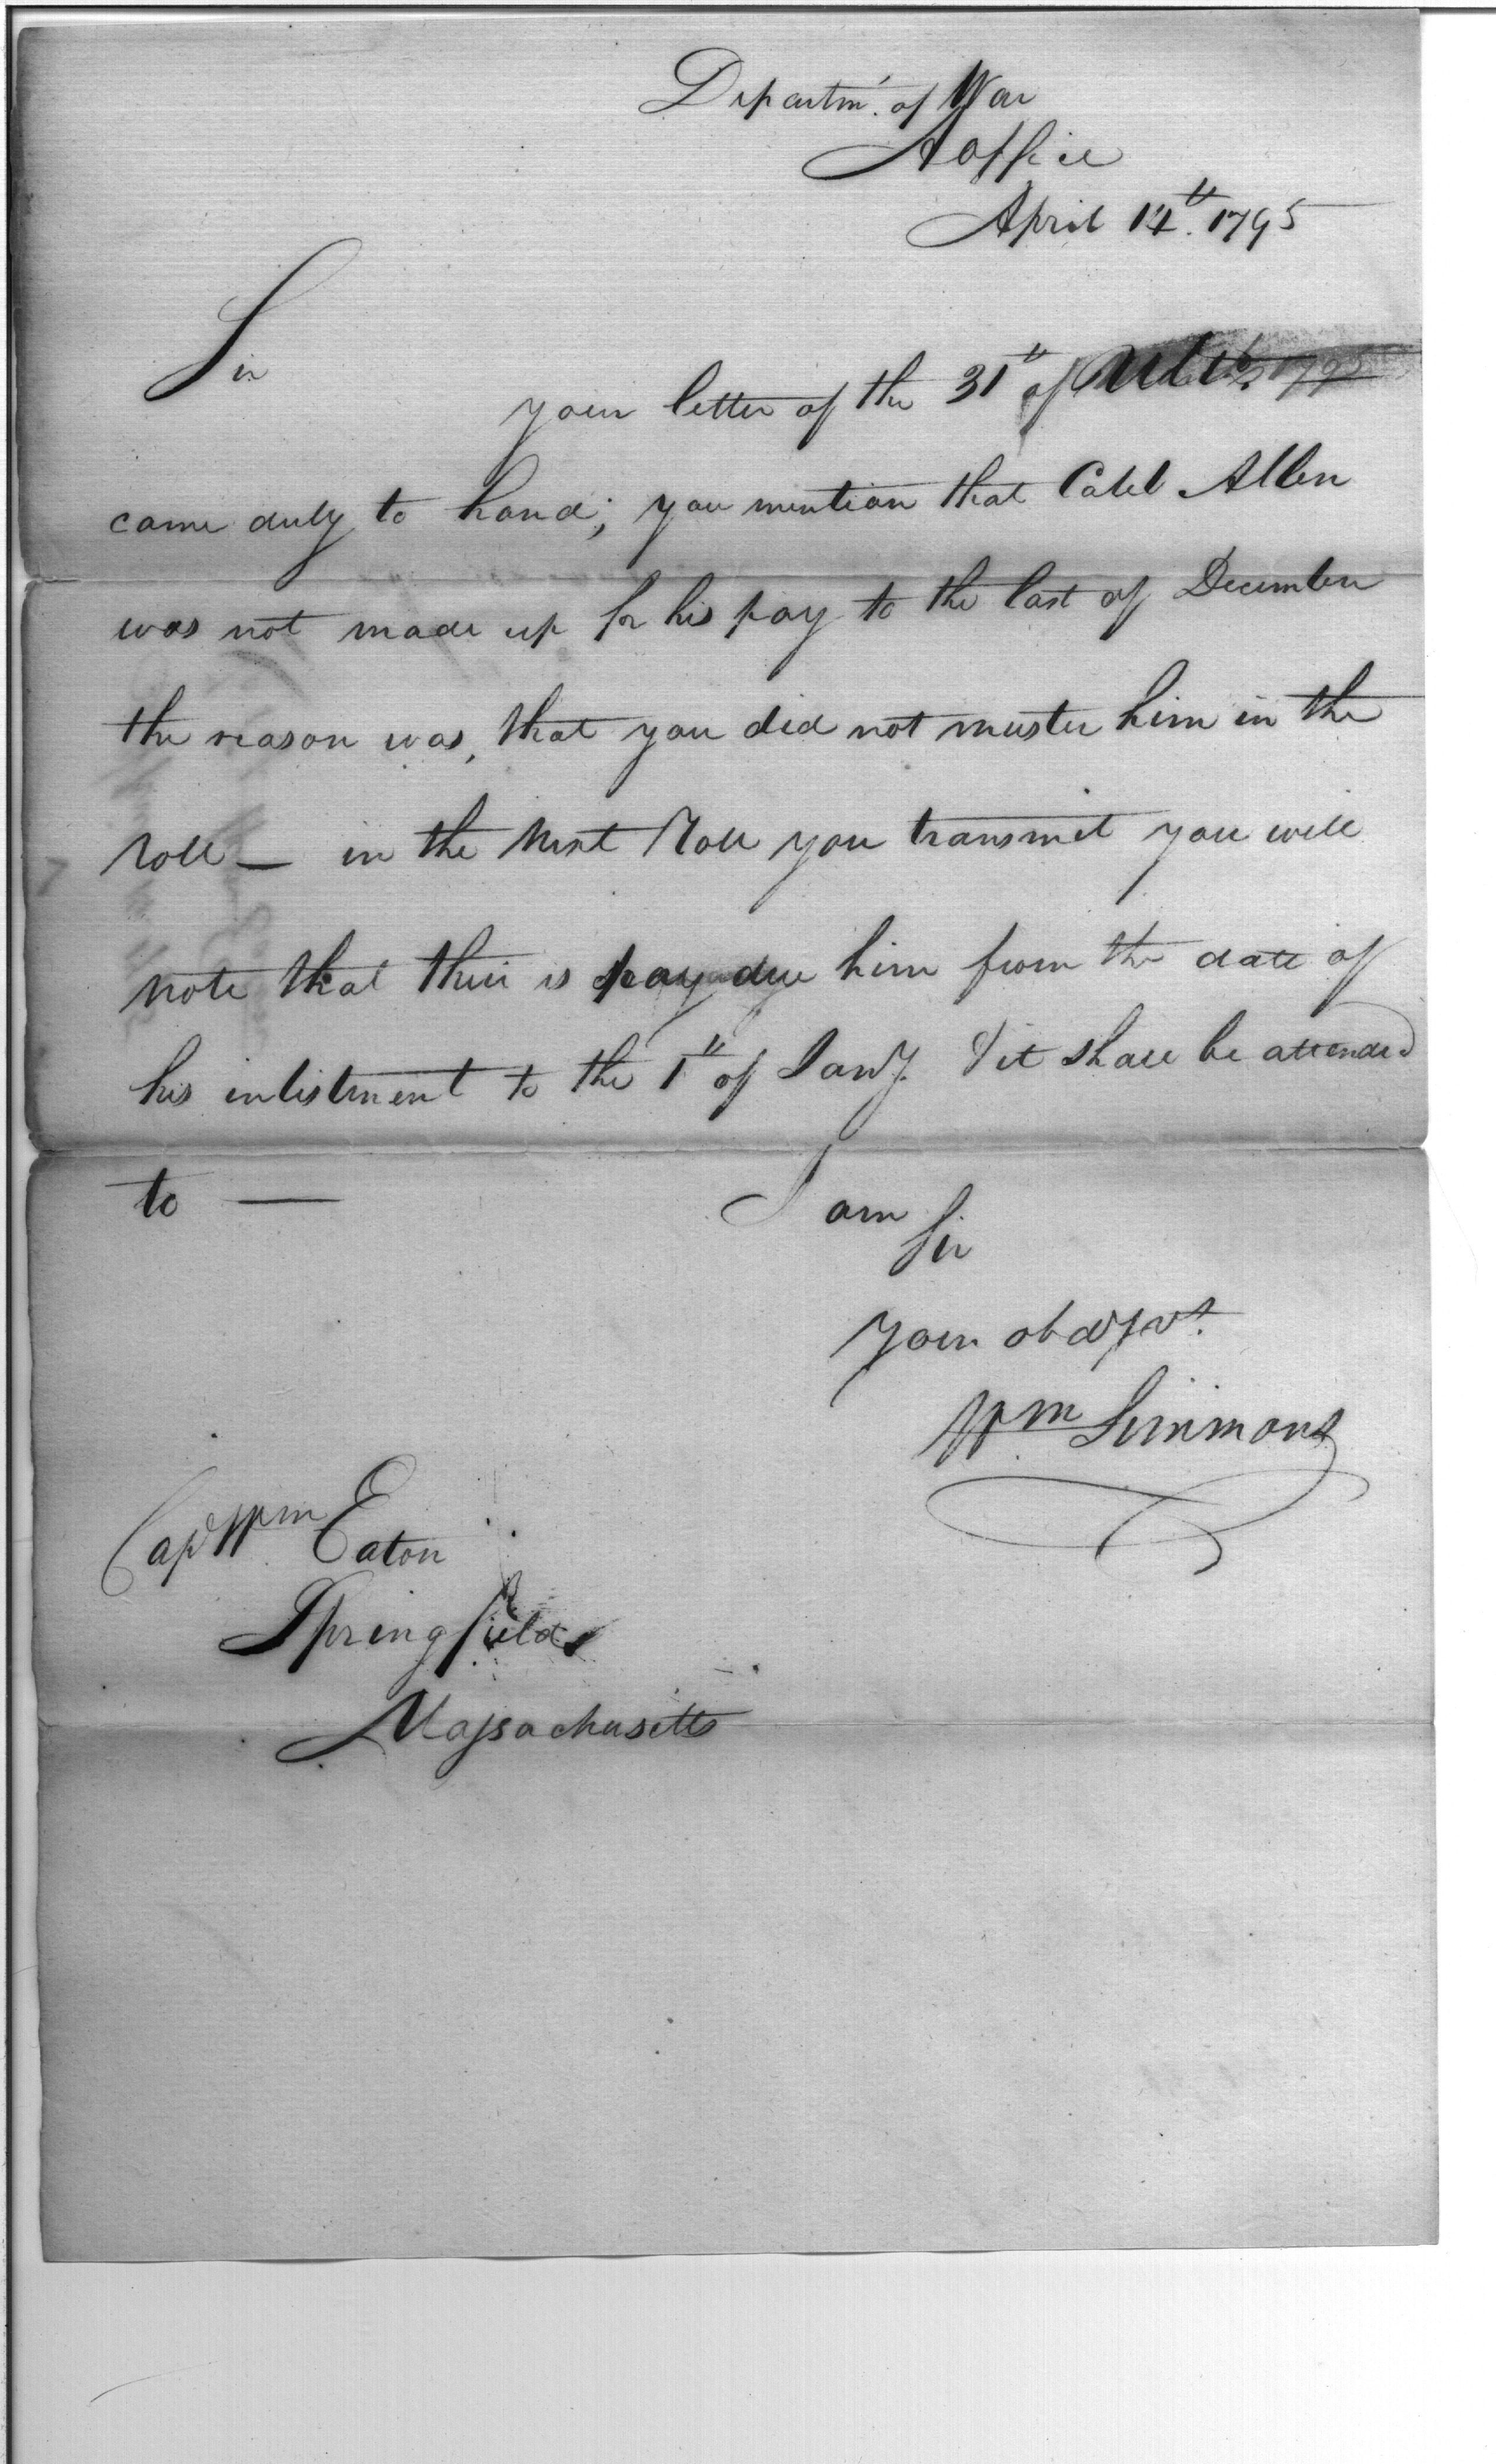 Departmt. of War
A Office
April 14th. 1795
Sir
your letter of the 31th of Ulto.
came duly to hand; you mention that Caleb Allen
was not made up for his pay to the last of December
the reason was, that you did not muster him in the
Roll — in the Next Roll you transmit you will
note that their is pay due him from the date of
his inlistment to the 1th of Jany. & it shall be attended
to —
I am
Sir
Your obd Svt.
Wm Simmons
Capt Wm Eaton
Springfield
Massachusetts